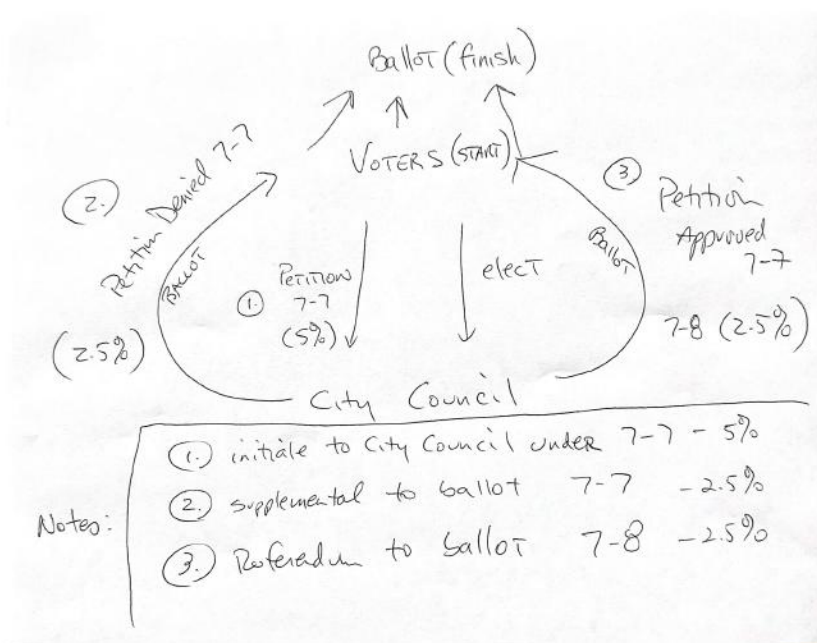 Ballot (finish)
VOTERS (START)
2.
Petition Denied 7-7
BALLOT
(2.5%)
1.
PETITION
7-7
(5%)
elect
3
Petition
Approved
7-7
Ballot
7-8 (2.5%)
City Council
Notes:
1. initiate to City Council under 7-7 - 5%
2. supplemental to ballot 7-7 - 2.5%
3. Referendum to ballot 7-8 - 2.5%